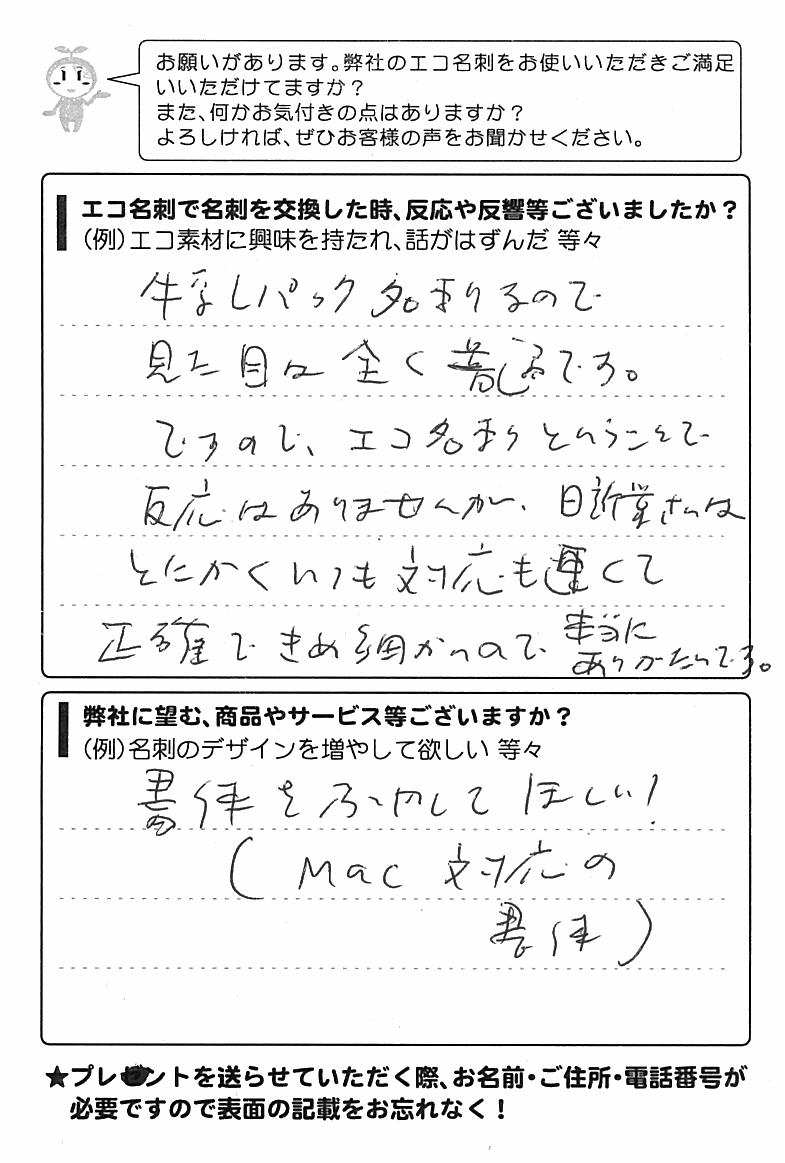 お願いがあります。弊社のエコ名刺をお使いいただきご満足
いいただけてますか？
また、何かお気付きの点はありますか？
よろしければ、ぜひお客様の声をお聞かせください。
エコ名刺で名刺を交換した時、反応や反響等ございましたか？
（例）エコ素材に興味を持たれ、話がはずんだ 等々
牛乳パック名刺なので
見た目は全く普通です。
ですので、エコ名刺ということで
反応はありませんが、日新堂さんは
とにかくいつも対応も速くて
正確できめ細かいので本当に
ありがたいです。
弊社に望む、商品やサービス等ございますか？
（例）名刺のデザインを増やして欲しい 等々
書体をふやしてほしい！
（Mac 対応の
書体）
★プレゼントを送らせていただく際、お名前・ご住所・電話番号が
必要ですので表面の記載をお忘れなく！